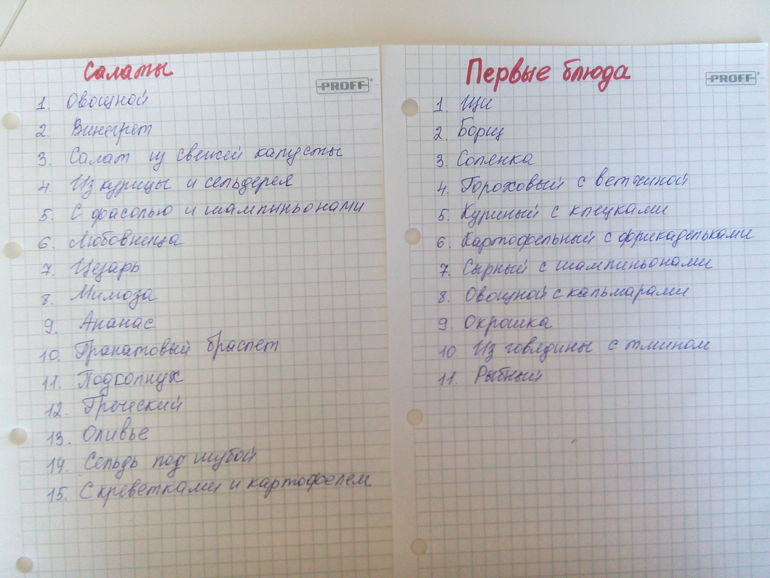 Салаты
PROFF
1. Овощной
2. Винегрет
3. Салат из свежей капусты
4. Из курицы и сельдерея
5. С фасолью и шампиньонами
6. Любовница
7. Цезарь
8. Мимоза
9. Ананас
10. Гранатовый браслет
11. Подсолнух
12. Греческий
13. Оливье
14. Сельдь под шубой
15. С креветками и картофелем
Первые блюда
PROFF
1 Щи
2 Борщ
3. Солянка
4. Гороховый с ветчиной
5. Куриный с клецками
6. Картофельный с фрикадельками
7. Сырный с шампиньонами
8. Овощной с кальмарами
9 Окрошка
10 Из говядины с тмином
11. Рыбный